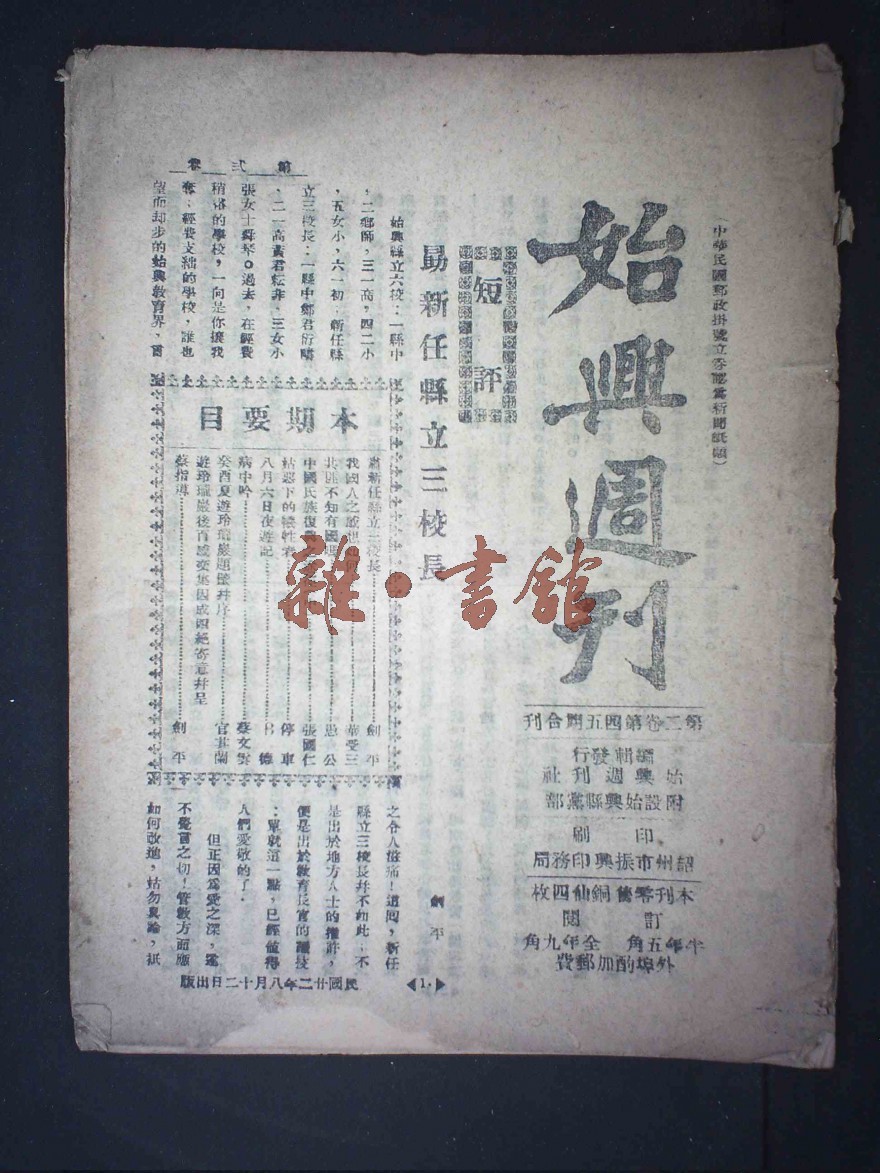 (中華民國郵政掛號立券認為新聞紙類)
始興週刊
第二卷第四五期合刊
編輯發行
始興週刊社
附設始興縣黨部
印刷
韶州市振興印務局
本刊零售銅仙四枚
訂閱
半年五角 全年九角
外埠酌加郵費
短評
勗新任縣立三校長
劍平
第弍卷
始興縣立六校:一縣中
,二鄉師,三一高,四二小
,五女小,六一初;新任縣
立三校長:一縣中鄭君衍疇
,二一高黃君耘非,三女小
張女士舜琴。過去,在經費
稍裕的學校,一向是你攘我
奪;經費支絀的學校,誰也
望而却步的始興教育界,言
之令人滋痛!這囘,新任
縣立三校長幷不如此;不
是出於地方人士的推許,
便是出於教育長官的識拔
;單就這一點,已經值得
人們愛敬的了.
但正因爲愛之深,遂
不覺言之切!管教方面應
如何改進,姑勿具論,祇
本期要目
勗新任縣立三校長……劍平
我國人之…華受三
共匪不知有國…愚公
中國民族復…張國仁
…下的犧牲者…停車
八月六日夜遊記……呂德
病中吟……蔡文雲
癸酉夏遊玲瓏巖題壁幷序……官其蘭
遊玲瓏巖後百感交集因成四絕寄意幷呈
蔡指導……劍平
◀1·▶
民國廿二年八月十二日出版
雜·書館